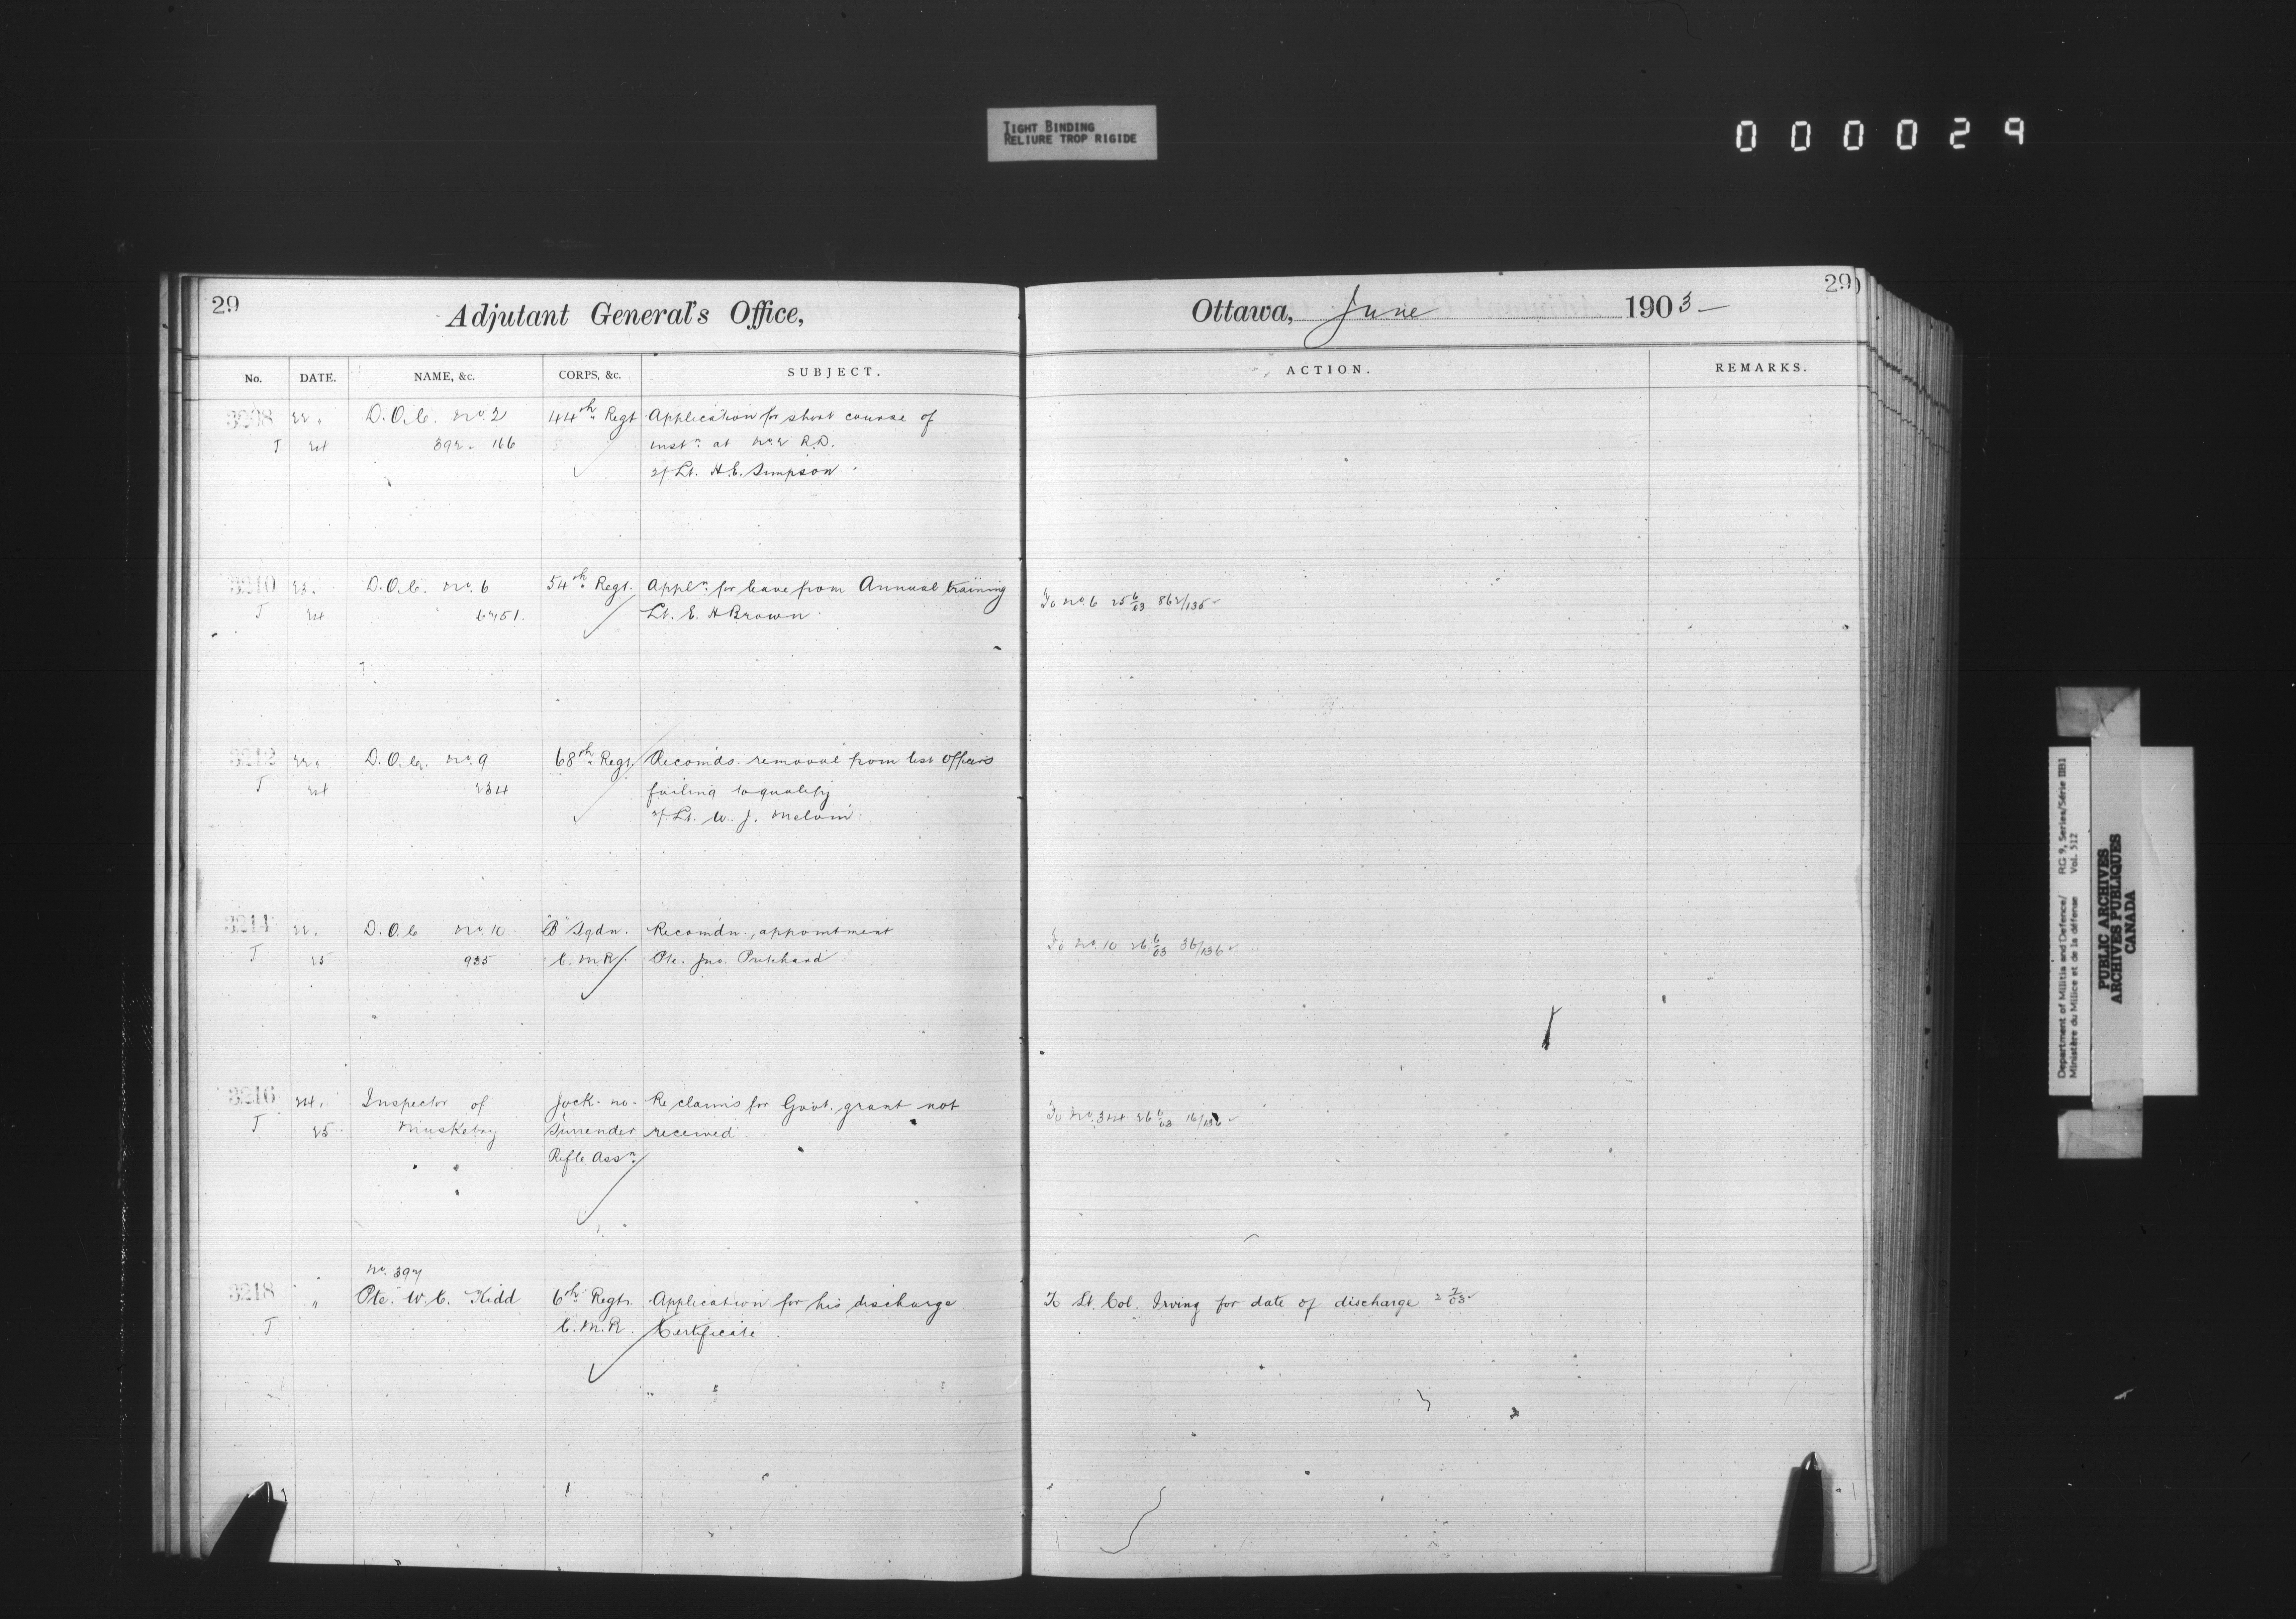 TIGHT BINDING
RELIURE TROP RIGIDE
000029
29
Adjutant General's Office,
No. DATE. NAME, &c. CORPS, &c. SUBJECT.
3208 22. D.O.C. No. 2 44th Regt Application for short course of
J 24 392-166 instn at No. 2 R.D.
2/Lt. H.E. Simpson
3210 23. D.O.C. No. 6 54th Regt. Appln for leave from Annual training
J 24 6751. Lt. E. H Brown
3212 22. D.O.C. No. 9 68th Regt. Recomds. removal from list officers
J 24 234 failing to qualify
2/Lt. W. J. Melvin
3214 22. D.O.C No. 10 "B" Sqdn. Recomdn., appointment
J 25 935 C.M.R. Pte. Jno. Pritchard
3216 24. Inspector of Jock-no- Re claims for Govt. grant not
J 25 Musketry Surrender received
Rifle Assn.
No. 397
3218 " Pte. W.C. Kidd 6th Regt. Application for his discharge
J C.M.R. Certificate.
29
Ottawa, June 1903
ACTION. REMARKS.
To No. 6 25 6/03 862/135
To No. 10 26 6/03 36/136
To No. 324 26 6/03 16/136
To Lt. Col. Irving for date of discharge 2 7/03
Department of Militia and Defence/ RG 9, Series/Série IIB1
Ministère du Milice et de la défense Vol. 512
PUBLIC ARCHIVES
ARCHIVES PUBLIQUES
CANADA